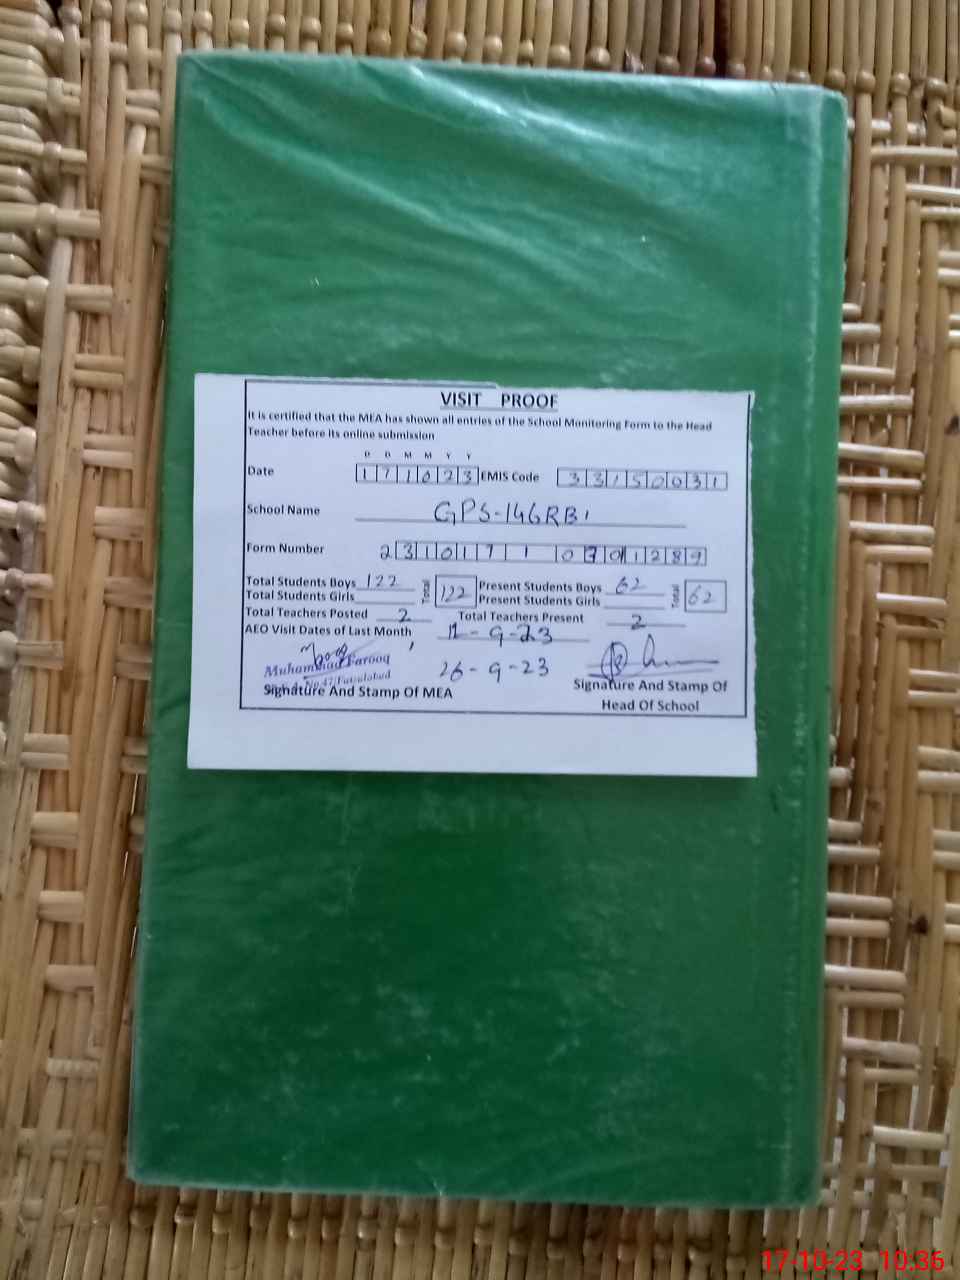 VISIT PROOF
It is certified that the MEA has shown all entries of the School Monitoring Form to the Head
Teacher before its online submission
D D M M Y Y
Date 171023 EMIS Code 33150031
School Name GPS-146RB
Form Number 2310171 0701289
Total Students Boys 122 Total 122 Present Students Boys 62 Total 62
Total Students Girls Present Students Girls
Total Teachers Posted 2 Total Teachers Present 2
AEO Visit Dates of Last Month 11-9-23
26-9-23
Muhammad Farooq
No.47/Faisalabad
Signature And Stamp Of MEA Signature And Stamp Of
Head Of School
17-10-23 10:36